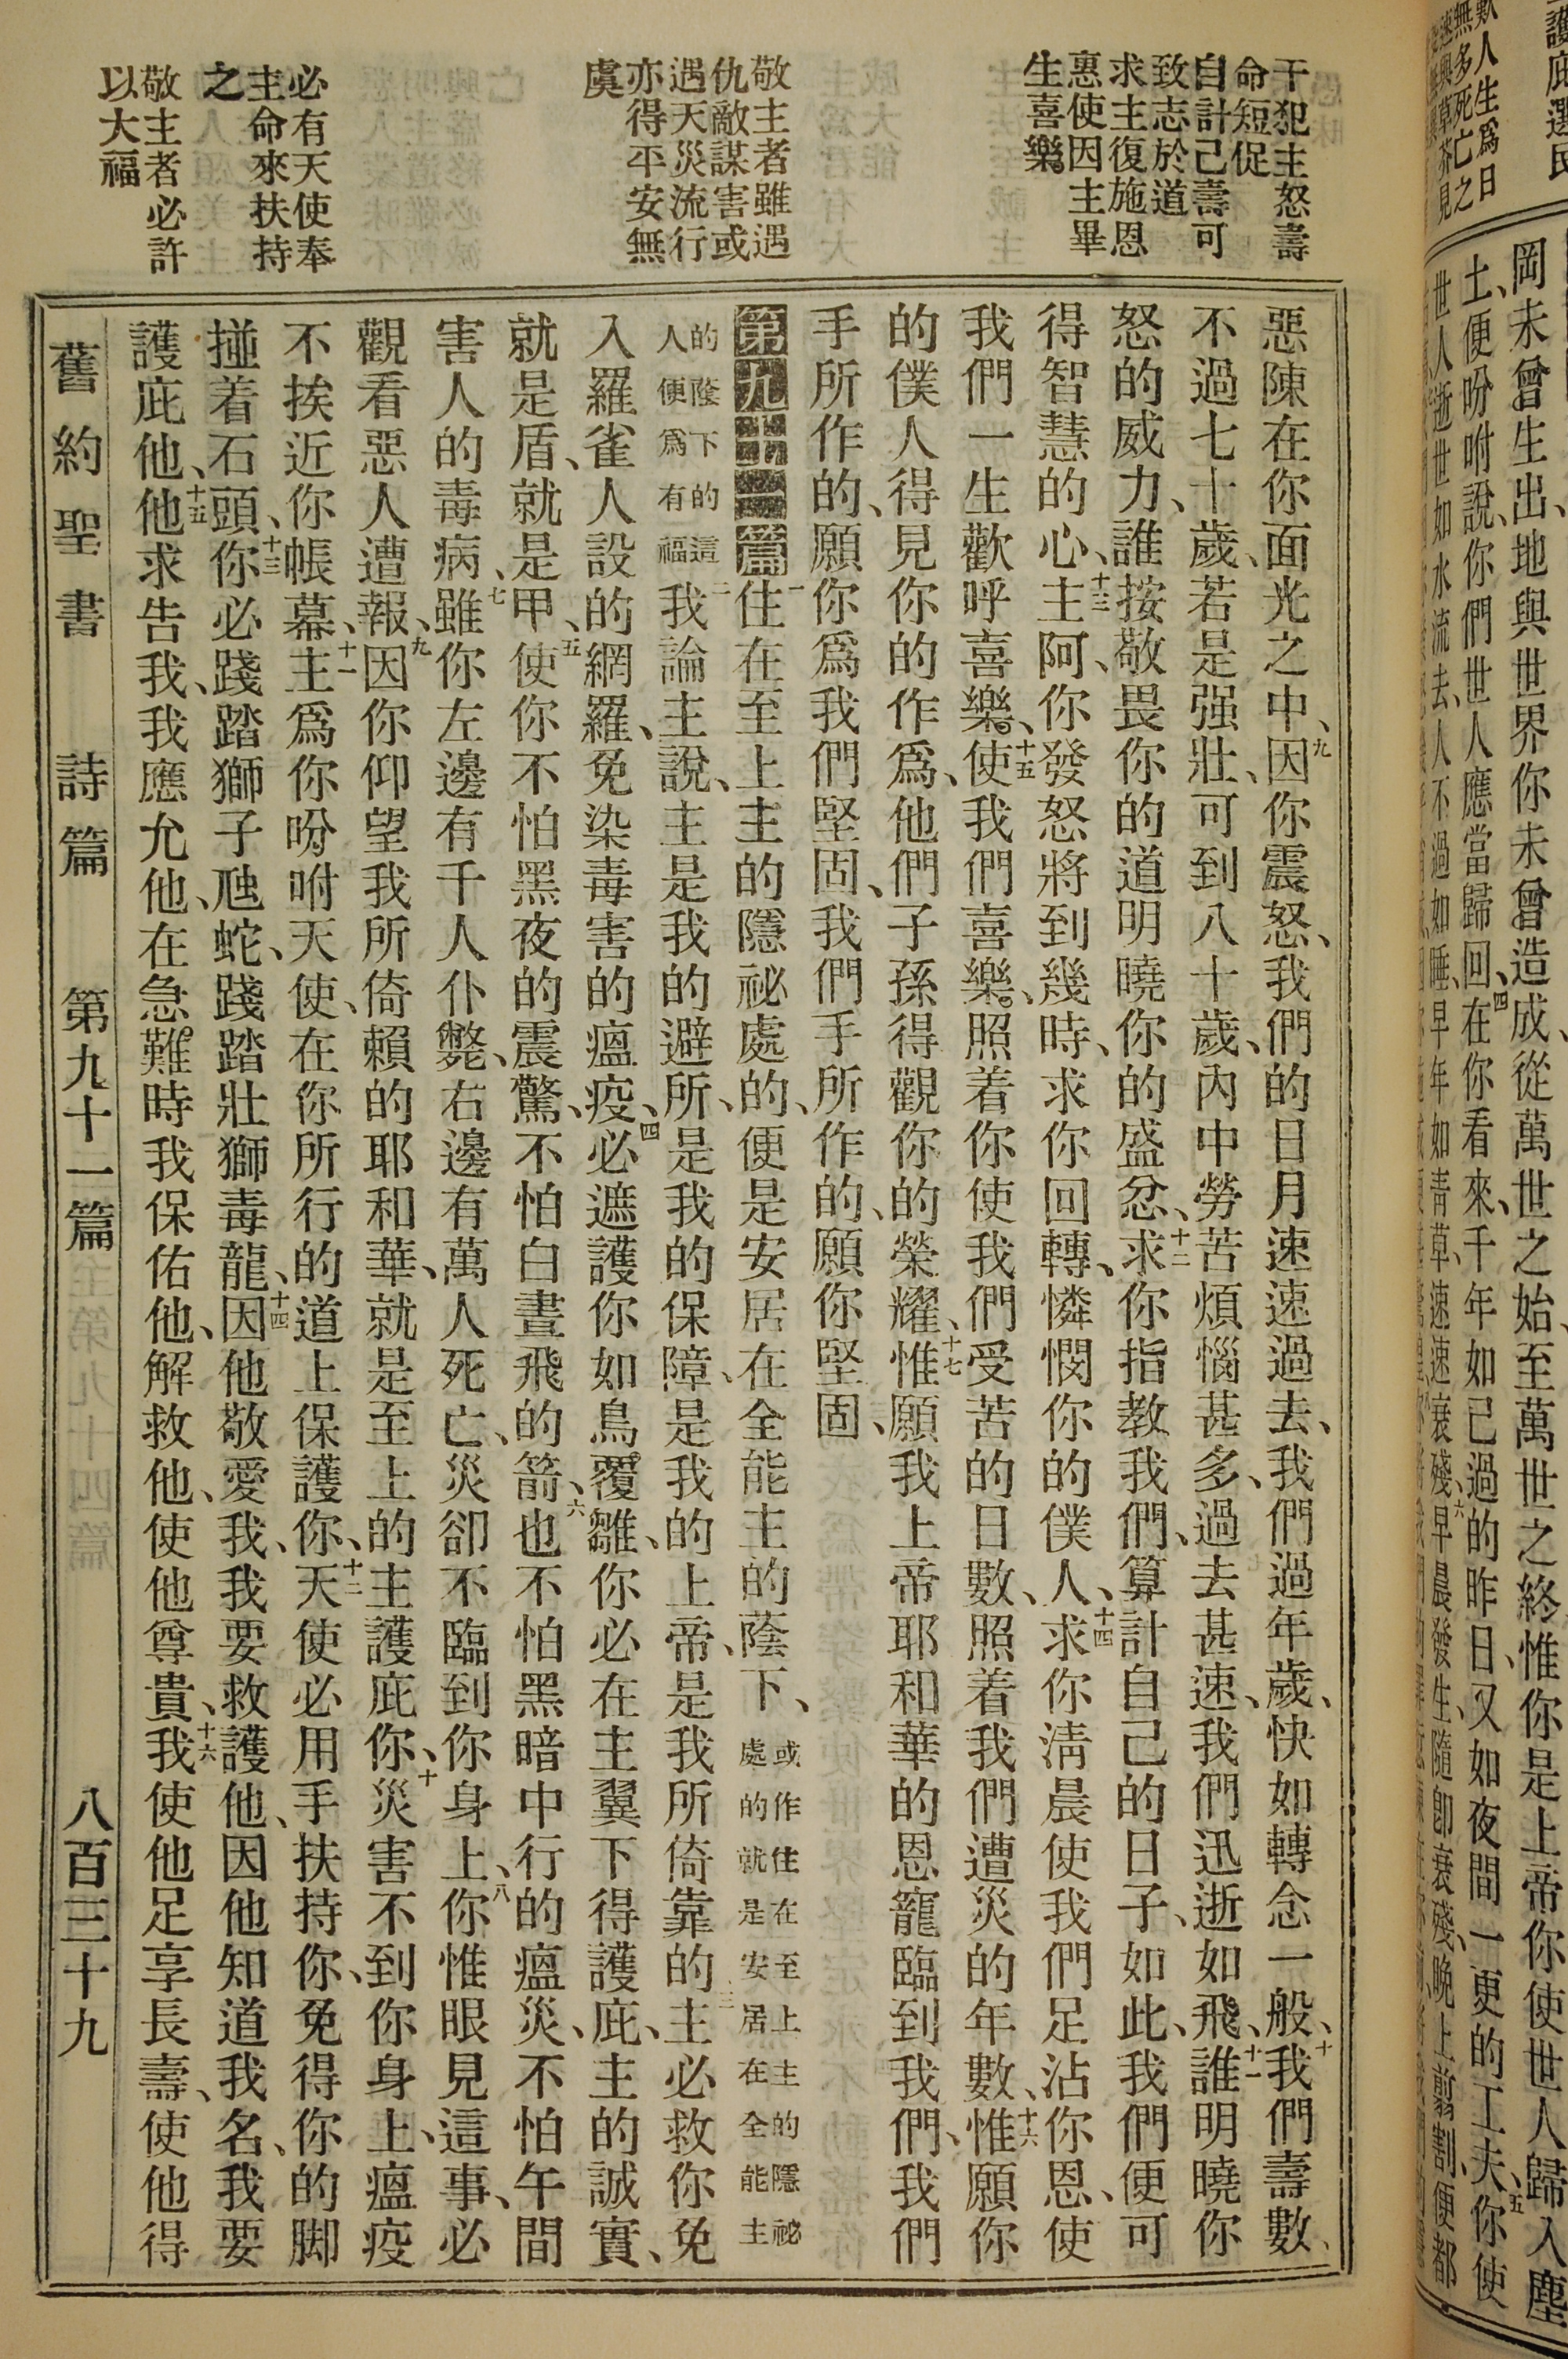 護庇選民
歎人生爲日
無多死亡之
岡未曾生出、地與世界你未曾造成、從萬世之始、至萬世之終惟你是上帝你使世人歸入塵
土、便吩咐說、你們世人應當歸回、四在你看來、千年如已過的昨日、又如夜間一更的工夫、五你使
世人逝世如水流去、人不過如睡、早年如青草、速速衰殘、六早晨發生、隨卽衰殘、晚上剪割、便都
干犯主怒壽
命短促
自計己壽可
致志於道
求主復施恩
惠使因主畢
生喜樂
敬主者雖遇
仇敵謀害或
遇天災流行
亦得平安無
虞
必有天使奉
主命來扶持
之
敬主者必許
以大福
惡陳在你面光之中、九因你震怒、我們的日月速速過去、我們過年歲、快如轉念一般、十我們壽數、
不過七十歲、若是强壯、可到八十歲、內中勞苦煩惱甚多、過去甚速、我們迅逝如飛、十一誰明曉你
怒的威力、誰按敬畏你的道明曉你的盛忿、十二求你指教我們、算計自己的日子、如此、我們便可
得智慧的心、十三主阿、你發怒將到幾時、求你回轉、憐憫你的僕人、十四求你淸晨使我們足沾你恩、使
我們一生歡呼喜樂、十五使我們喜樂、照着你使我們受苦的日數、照着我們遭災的年數、十六惟願你
的僕人得見你的作爲、他們子孫得觀你的榮耀、十七惟願我上帝耶和華的恩寵臨到我們、我們
手所作的、願你爲我們堅固、我們手所作的、願你堅固、
第九十一篇 一住在至上主的隱祕處的、便是安居在全能主的蔭下、或作住在至上主的隱祕處的就是安居在全能主
的蔭下的這人便爲有福 二我論主說、主是我的避所、是我的保障、是我的上帝、是我所倚靠的、三主必救你免
入羅雀人設的網羅、免染毒害的瘟疫、四必遮護你如鳥覆雛、你必在主翼下得護庇、主的誠實、
就是盾、就是甲、五使你不怕黑夜的震驚、不怕白晝飛的箭、六也不怕黑暗中行的瘟災、不怕午間
害人的毒病、七雖你左邊有千人仆斃、右邊有萬人死亡、災卻不臨到你身上、八你惟眼見這事、必
觀看惡人遭報、九因你仰望我所倚賴的耶和華、就是至上的主護庇你、十災害不到你身上、瘟疫
不挨近你帳幕、十一主爲你吩咐天使、在你所行的道上保護你、十二天使必用手扶持你、免得你的脚
掽着石頭、十三你必踐踏獅子虺蛇、踐踏壯獅毒龍、十四因他敬愛我、我要救護他、因他知道我名、我要
護庇他、十五他求告我、我應允他、在急難時我保佑他、解救他、使他尊貴、十六我使他足享長壽、使他得
舊約聖書 詩篇 第九十一篇 八百三十九